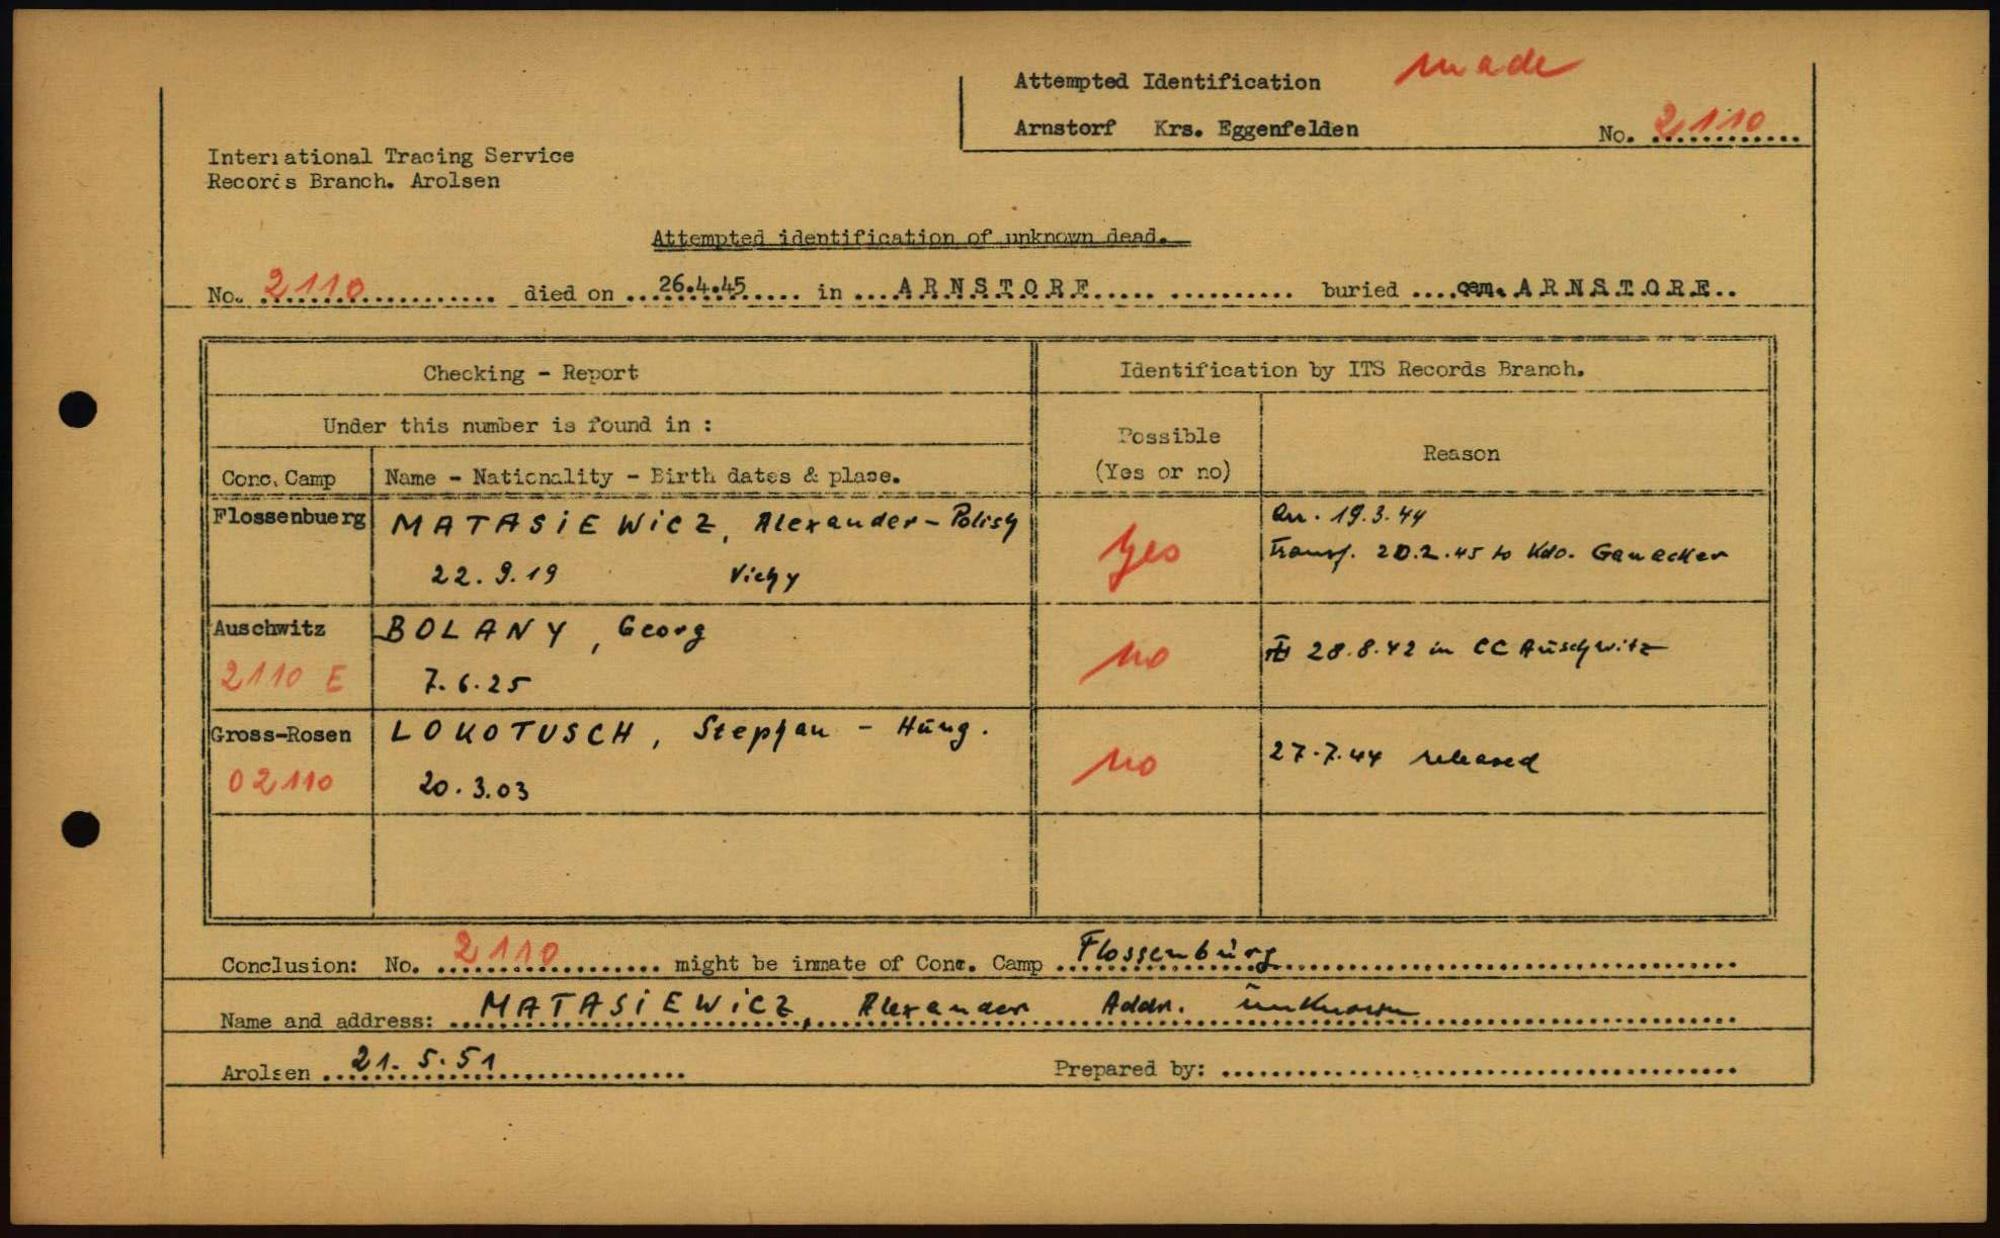 Attempted Identification made
Arnstorf Krs. Eggenfelden No. 2110
International Tracing Service
Records Branch. Arolsen
Attempted identification of unknown dead.
No. 2110 died on 26.4.45 in ARNSTORF buried cem. ARNSTORF
Checking - Report
Identification by ITS Records Branch.
Under this number is found in :
Possible
(Yes or no)
Reason
Conc. Camp Name - Nationality - Birth dates & place.
Flossenbuerg MATASIEWICZ, Alexander - Polish
22.9.19 Vichy
Yes
arr. 19.3.44
Transf. 20.2.45 to Kdo. Ganacker
Auschwitz BOLANY, Georg
2110 E 7.6.25
no
28.8.42 in CC Auschwitz
Gross-Rosen LOKOTUSCH, Stephan - Hung.
02110 20.3.03
no
27.7.44 released
Conclusion: No. 2110 might be inmate of Conc. Camp Flossenbürg
Name and address: MATASIEWICZ, Alexander Addr. unknown
Arolsen 21.5.51 Prepared by: